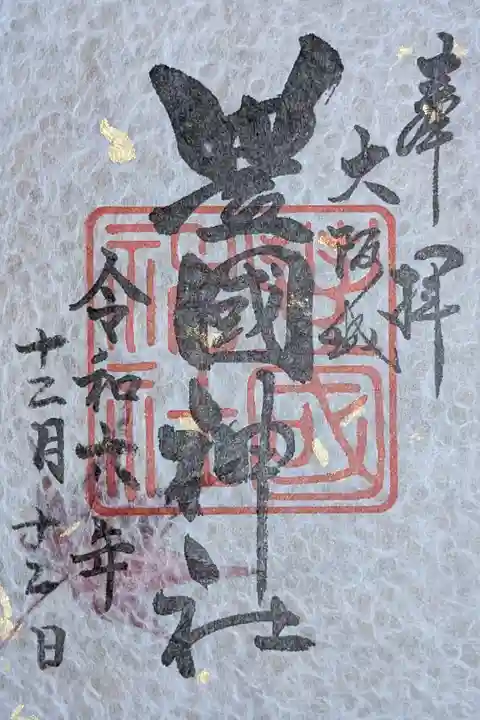 奉拝
大阪城
豊國神社
令和六年
十二月十二日
豊國
神社